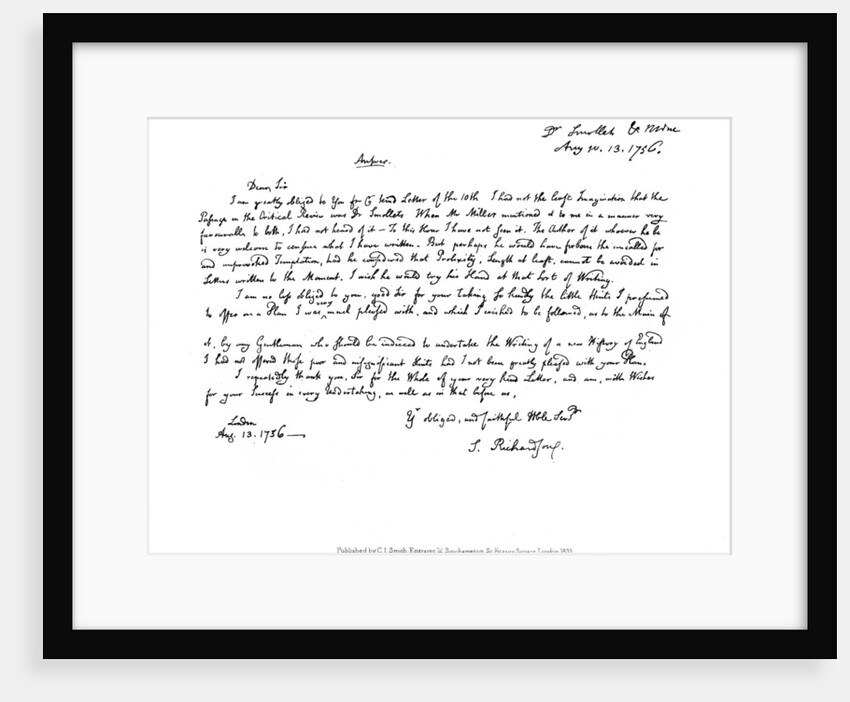 Dr Smollet & Mine
Aug 10. 13. 1756.
Answer.
Dear Sir
I am greatly obliged to You for Kind Letter of the 10th I had not the least Imagination that the
Passage in the Critical Review was Dr Smollets When Mr Millar mentioned it to me in a manner very
favourable to both, I had not heard of it — To this Hour I have not seen it. The Author of it whoever he be
is very welcome to censure what I have written. But perhaps he would have forborne the uncalled for
and unprovoked Temptation, had he considered that Prolixity, Length at least, cannot be avoided in
Letters written to the Moment. I wish he would try his Hand at that Sort of Writing.
I am no less obliged to you, good Sir for your taking so kindly the little Hints I presumed
to offer on a Plan I was very much pleased with, and which I wished to be followed, as to the Main of
it, by any Gentleman who should be induced to undertake the Writing of a new History of England
I had not offered those poor and insignificant Hints had I not been greatly pleased with your Plan.
I repeatedly thank you, Sir for the Whole of your very kind Letter, and am, with Wishes
for your Success in every Undertaking, as well as in that before us,
Yr obliged, and faithful Hble Servt
London
Aug. 13. 1756—
S. Richardson.
Published by C. J. Smith, Engraver, Southampton St. Square London 1835